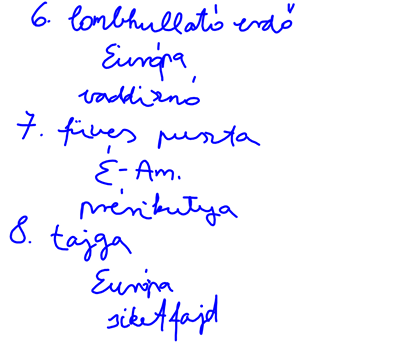 6. lombhullató erdő
Európa
vaddisznó
7. füves puszta
É-Am.
prérikutya
8. tajga
Európa
siketfajd